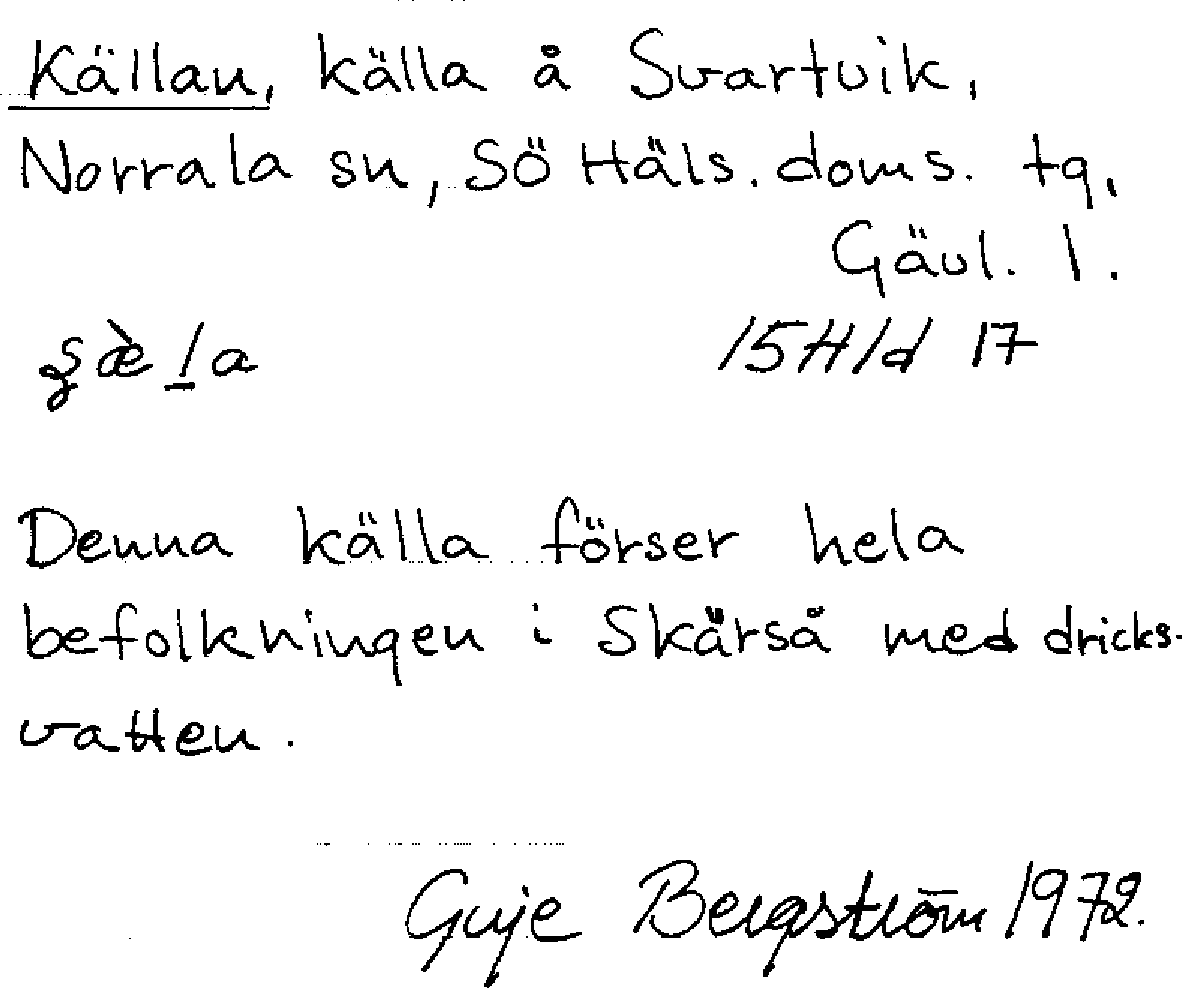 Källan, källa å Svartvik,
Norrala sn, Sö Häls. doms. tg,
Gävl. l.
15H1d 17
Denna källa förser hela
befolkningen i Skärså med dricks-
vatten.
Guje Bergström 1972.